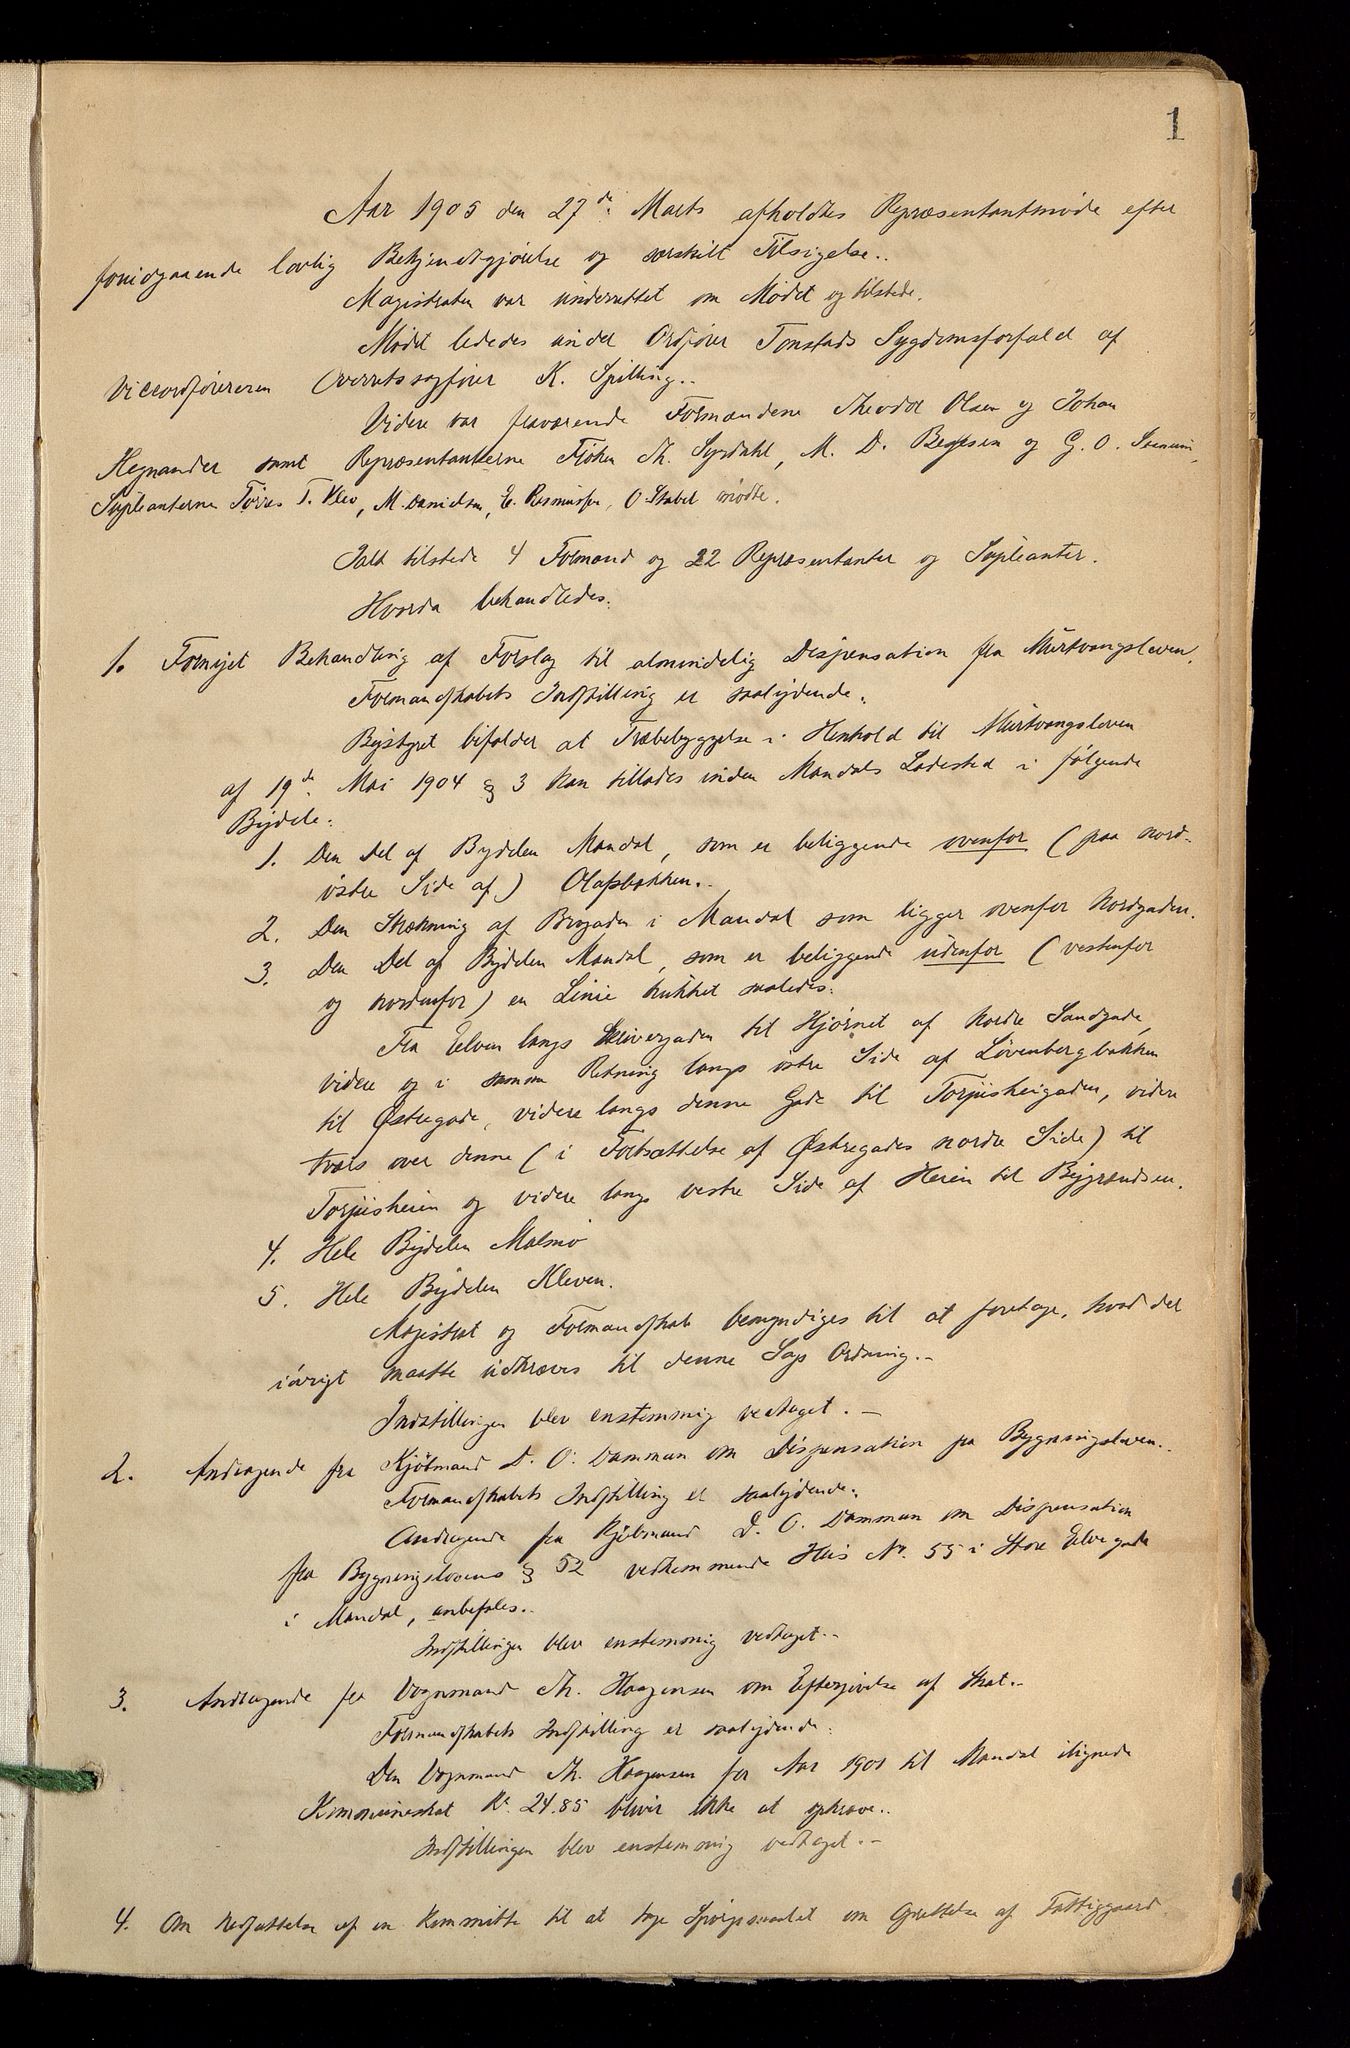 1
Aar 1905 den 27de Marts afholdtes Repræsentantmøde efter
forudgaaende lovlig Bekjendtgjørelse og særskilt Tilsigelse..
Magistraten var underrettet om Mødet og tilstede.
Mødet lededes under Ordfører Tonstads Sygdomsforfald af
Viceordføreren Overretssagfører K. Spilling..
Videre var fraværende Formændene Theodor Olsen og Johan
Hegnander samt Repræsentanterne Fisker Th. Syrdahl, M. D. og G. O.
Supleanterne Tørres T. Klev, M. Danielsen, E. Rasmussen, O. Stabel mødte.
Ialt tilstede 4 Formænd og 22 Repræsentanter og Supleanter.
Hvorda behandledes:
1. Fornyet Behandling af Forslag til almindelig Dispensation fra Murtvangsloven.
Formandskabets Indstilling er saalydende:
Bystyret bifalder at Træbebyggelse i Henhold til Murtvangsloven
af 19de Mai 1904 § 3 kan tillades inden Mandals Ladested i følgende
Bydele:
1. Den Del af Bydelen Mandal, som er beliggende ovenfor (paa nord-
østre Side af) Olafsbakken..
2. Den Strækning af Brogaden i Mandal som ligger ovenfor Nordgaden.
3. Den Del af Bydelen Mandal, som er beliggende udenfor (vestenfor
og nordenfor) en Linie trukket saaledes:
Fra Elven langs Skrivergaden til Hjørnet af Nordre Sandgade,
videre og i samme Retning langs østre Side af Løvenbergbakken
til Østregade, videre langs denne Gade til Torjusheigaden, videre
tværs over denne (i Fortsættelse af Østregades nordre Side) til
Torjusheien og videre langs vestre Side af Heien til Bygrændsen.
4. Hele Bydelen Malmø
5. Hele Bydelen Kleven.
Magistrat og Formandskab bemyndiges til at foretage, hvad der
iøvrigt maatte udkræves til denne Sags Ordning.-
Indstillingen blev enstemmig vedtaget.-
2. Andragende fra Kjøbmand D. O. Damman om Dispensation fra Bygningsloven..
Formandskabets Indstilling er saalydende:
Andragende fra Kjøbmand D. O. Damman om Dispensation
fra Bygningslovens § 52 vedkommende Hus No. 55 i Store Elvegade
i Mandal, anbefales..
Indstillingen blev enstemmig vedtaget.-
3. Andragende fra Vognmand Th. Haagensen om Eftergivelse af Skat.-
Formandskabets Indstilling er saalydende:
Den Vognmand Th. Haagensen for Aar 1901 til Mandal ilignede
Kommuneskat Kr. 24.85 bliver ikke at opkræve..
Indstillingen blev enstemmig vedtaget.-
4. Om Nedsættelse af en Kommitte til at tage Spørgsmaalet om Oprettelse af Fattiggaard